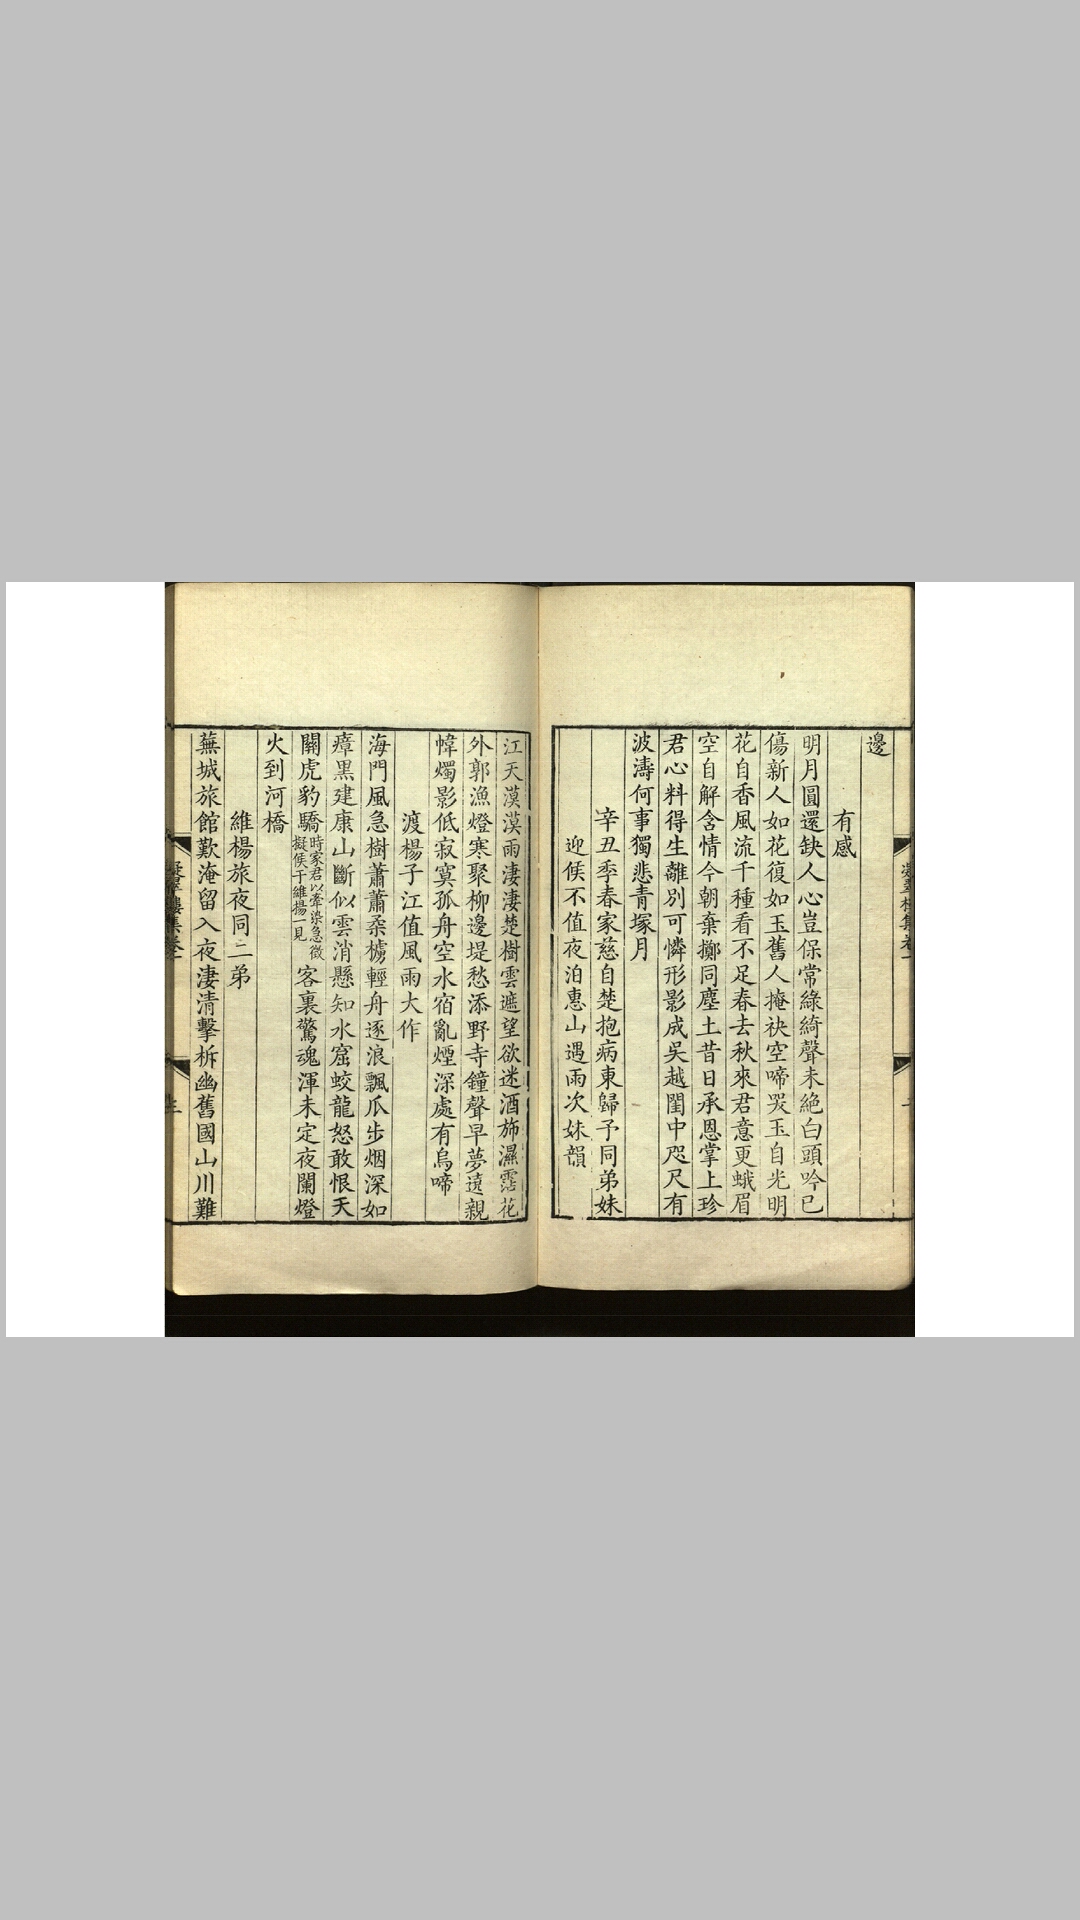 邊
有感
明月圓還缺人心豈保常綠綺聲未絕白頭吟已
傷新人如花復如玉舊人掩袂空啼哭玉自光明
花自香風流千種看不足春去秋來君意更蛾眉
空自解含情今朝棄擲同塵土昔日承恩掌上珍
君心料得生離別可憐形影成吳越閨中咫尺有
波濤何事獨悲青塚月
辛丑季春家慈自楚抱病東歸予同弟妹
迎候不值夜泊惠山遇雨次妹韻
江天漠漠雨淒淒楚樹雲遮望欲迷酒斾濕霑花
外郭漁燈寒聚柳邊堤愁添野寺鐘聲早夢遠親
幃燭影低寂寞孤舟空水宿亂煙深處有烏啼
渡楊子江值風雨大作
海門風急樹蕭蕭柔櫓輕舟逐浪飄瓜步烟深如
瘴黑建康山斷似雲消懸知水窟蛟龍怒敢恨天
關虎豹驕時家君以牽染急徵擬侯于維揚一見客裏驚魂渾未定夜闌燈
火到河橋
維楊旅夜同二弟
蕪城旅館歎淹留入夜淒清擊柝幽舊國山川難
集卷一